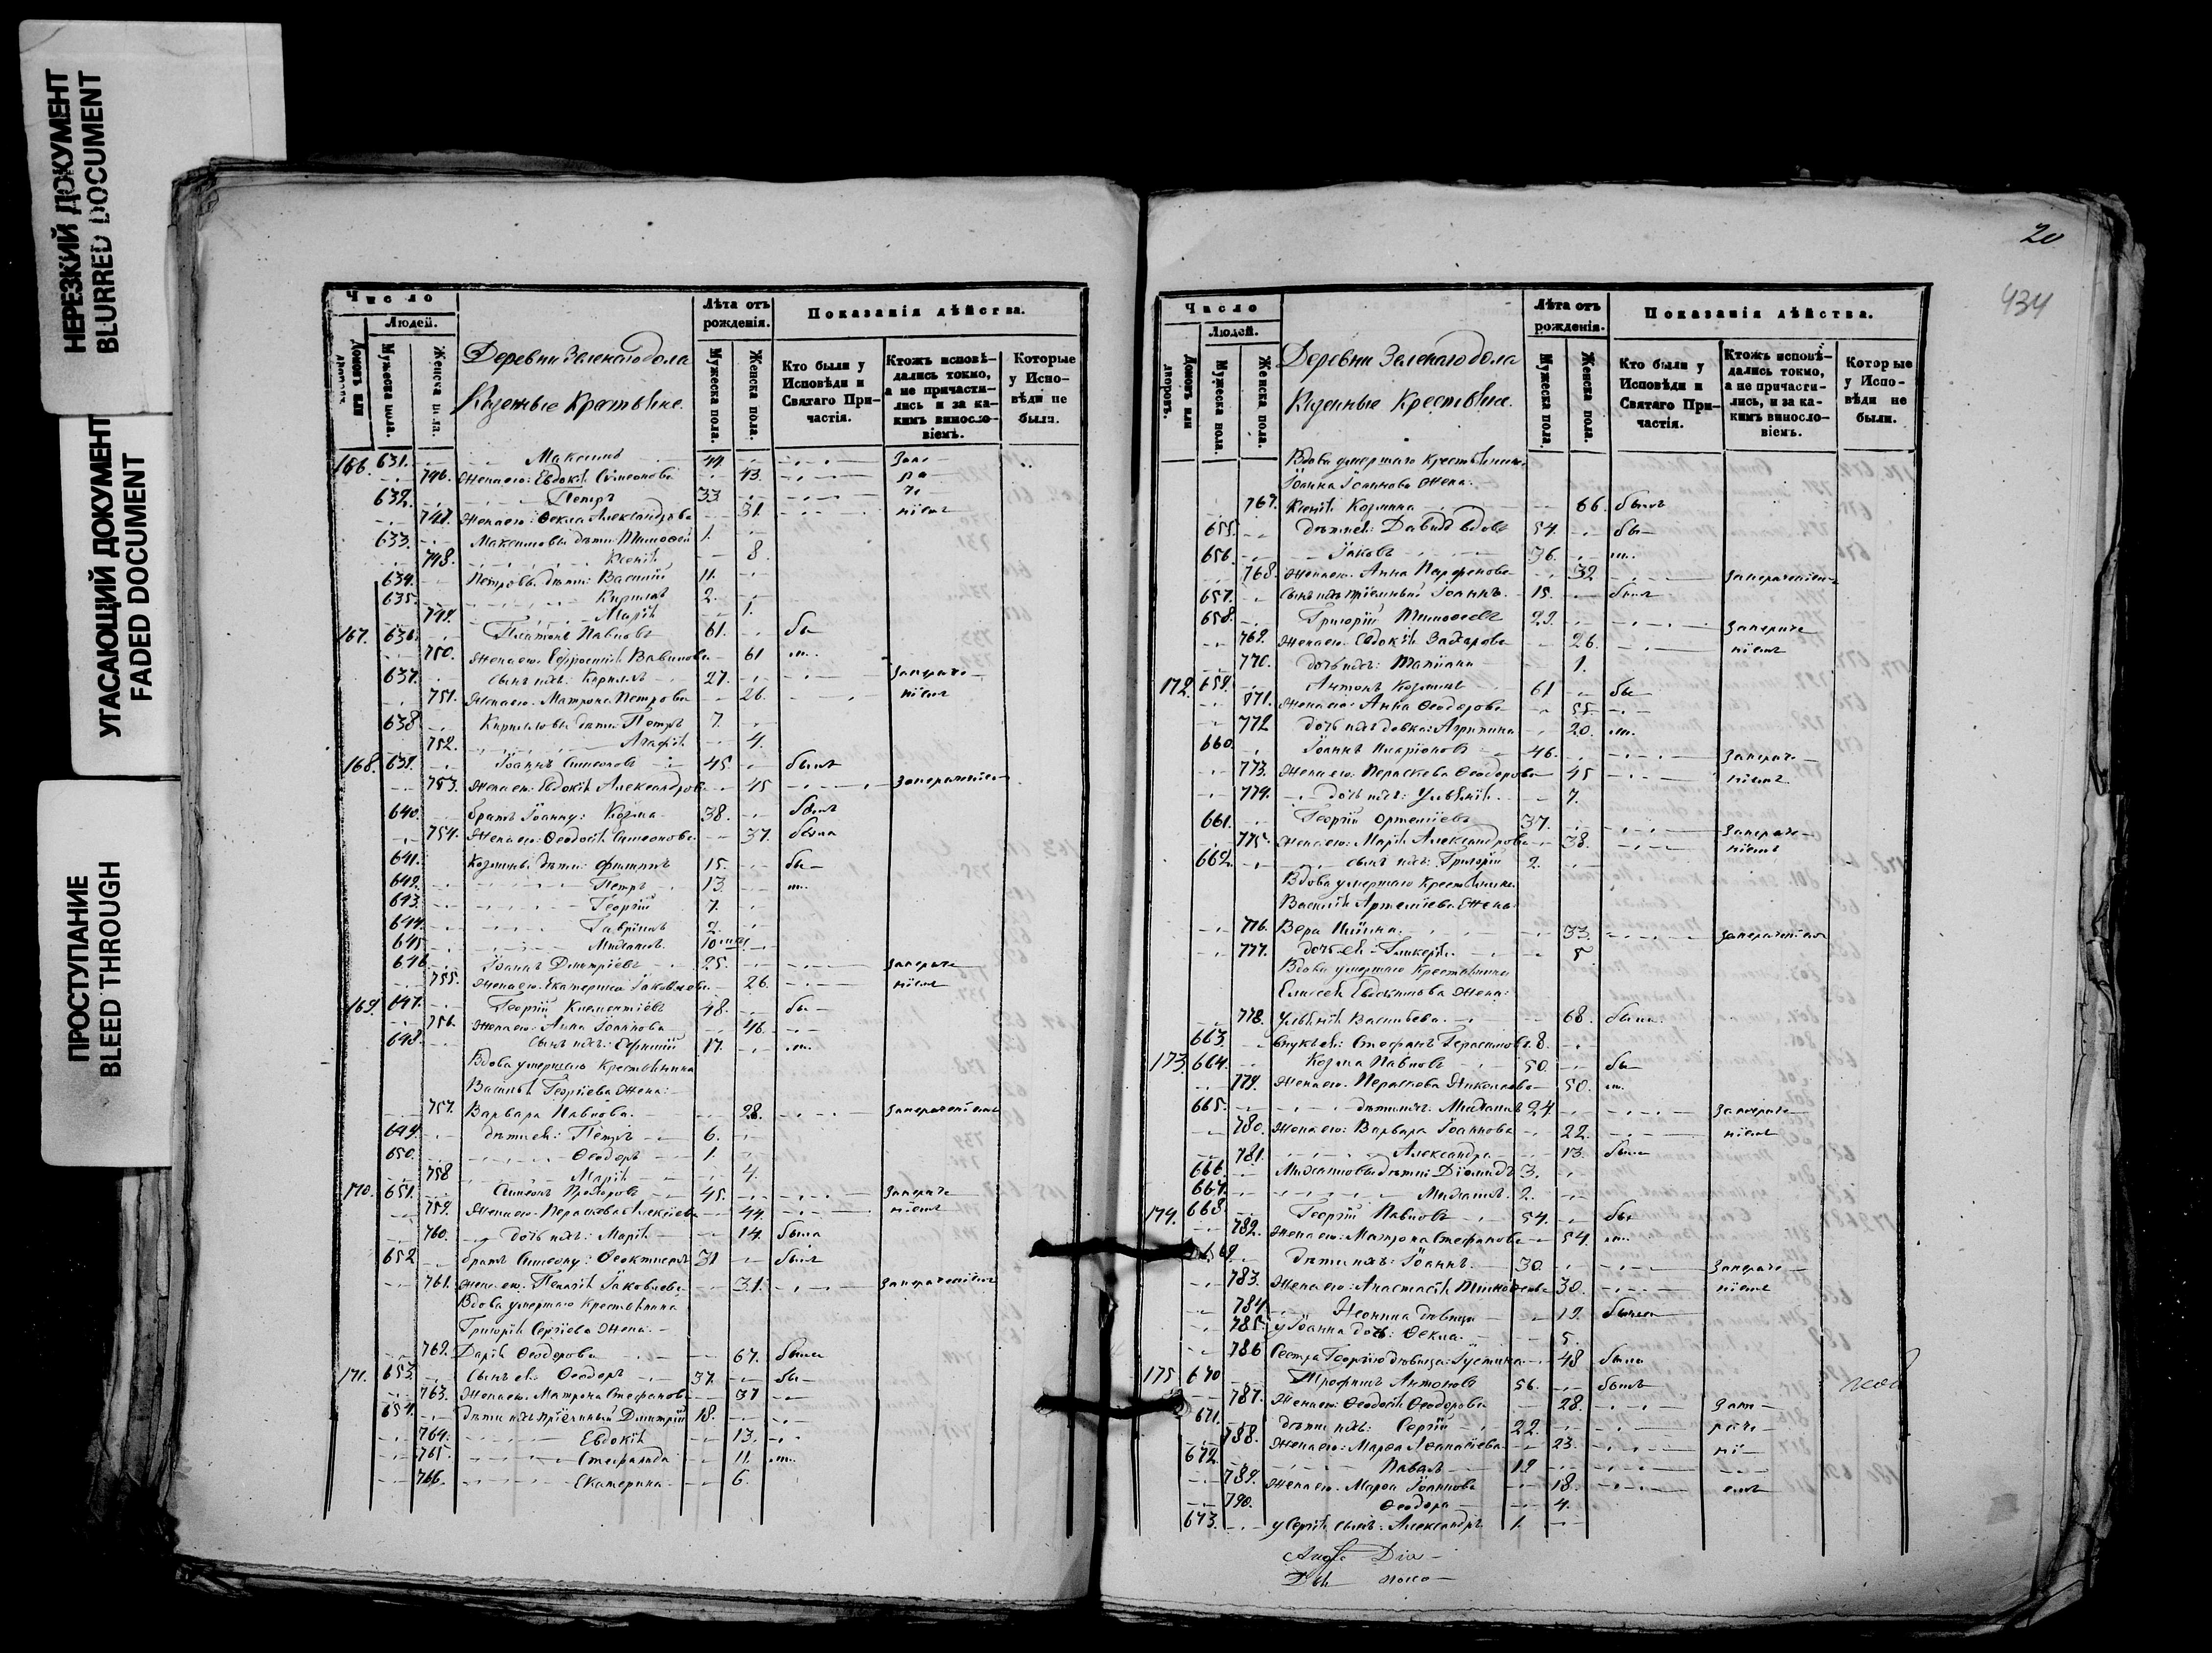 НЕРЕЗКИЙ ДОКУМЕНТ
BLURRED DOCUMENT
УГАСАЮЩИЙ ДОКУМЕНТ
FADED DOCUMENT
ПРОСТУПАНИЕ
BLEED THROUGH
Число
Людей.
Домовъ или дворовъ.
Мужеска пола.
Женска пола.
Деревни Зеленагодола
Казенные Крестьяне.
Лѣта отъ рожденія.
Мужеска пола.
Женска пола.
Показанія дѣйства.
Кто были у Исповѣди и Святаго Причастія.
Ктожъ исповѣдались токмо, а не причастились и за какимъ винословіемъ.
Которые у Исповѣди не были.
166. 631. Максимъ 44
746. Жена его: Евдокія Симеонова 43.
632. Петръ 33
747. Жена его: Ѳекла Александрова 31.
633. Максимовы дѣти: Тимоѳей 1.
748. Ксенія 8
634. Петровы дѣти: Василій 11.
635. Кириллъ 2.
749. Марія 1.
167. 636. Платонъ Павловъ 61. бы
750. Жена его: Ефросинія Вавилова 61
637. Сынъ ихъ: Кириллъ 27. за отлуче
751. Жена его: Матрона Петрова 26. ніемъ
638 Кирилловы дѣти: Петръ 7.
752. Агафія 4.
168. 639. Іоаннъ Симеоновъ 45. былъ
753. Жена его: Евдокія Александрова 45
640. братъ Іоанну: Козма 38. былъ
754. Жена его: Ѳеодосія Симеонова 37. была
641. Козмины дѣти: Филиппъ 15. бы
642. Петръ 13. ли
643. Георгій 7.
644. Гавріилъ 2.
645. Михаилъ 10 мѣ
646 Іоаннъ Дмитріевъ 25.
755. Жена его: Екатерина Іаковлева 26. ніемъ
169. 647. Георгій Климентіевъ 48. бы
756. Жена его: Анна Іоаннова 46.
648. Сынъ ихъ: Евфимій 17. ли
Вдова умершаго крестьянина
Василія Георгіева жена:
757. Варвара Павлова. 28.
649. дѣти ея: Петръ 6.
650. Ѳеодоръ 1.
758 Марія 4.
170. 651. Симеонъ Прохоровъ 45.
759. Жена его: Параскева Алексіева 44. ніемъ
760. дочь ихъ: Марія 14. была
652 братъ Симеону: Ѳеоктистъ 31 былъ
761. Жена его: Пелагія Іаковлева 31.
Вдова умершаго крестьянина
Григорія Сергіева жена.
762. Дарія Ѳеодорова 67. была
171. 653. Сынъ ея: Ѳеодоръ 37. бы
763. Жена его: Матрона Стефанова 37
654. дѣти ихъ пріемный Дмитрій 18.
764. Евдокія 13.
765. Стефанида 11. ли
766. Екатерина 6.
20
434
Число
Людей.
Домовъ или дворовъ.
Мужеска пола
Женска пола.
Деревни Зеленагодола
Казенные Крестьяне.
Лѣта отъ рожденія.
Мужеска пола.
Женска пола.
Показанія дѣйства.
Кто были у Исповѣди и Святаго Причастія.
Ктожъ исповѣдались токмо, а не причастились, и за какимъ винословіемъ.
Которые у Исповѣди не были.
Вдова умершаго крестьянина
Іоанна Іоаннова жена:
767. Ксенія Козмина 66.
655. дѣти ея: Давидъ вдовъ 54. бы
656. Іаковъ 36. ли
768. Жена его: Анна Парфенова 32
657. Сынъ ихъ пріемный Іоаннъ 15. былъ
658. Григорій Тимоѳеевъ 29.
769. Жена его: Евдокія Захарова 26. ніемъ
770. дочь ихъ: Татіана 1.
172. 659. Антонъ Козминъ 61 бы
771. Жена его: Анна Ѳеодорова 55.
772 дочь ихъ девка: Агрипина 20. ли
660. Іоаннъ Иларіоновъ 46.
773. Жена его: Параскева Ѳеодорова 45 ніемъ
774. дочь ихъ: Ульянія 7.
661. Георгій Артеміевъ 37.
775. Жена его: Марія Александрова 38. ніемъ
662. сынъ ихъ: Григорій 2.
Вдова умершаго крестьянина
Василія Артеміева жена
776. Вера Ильина 33.
777. дочь ея: Гликерія 5
Вдова умершаго крестьянина
Елисея Евсевіева жена:
778. Ульянія Васильева 68. была
663. внукъ ея: Стефанъ Герасимовъ 8.
173. 664. Козма Павловъ 50. бы
779. Жена его: Параскева Николаева 50. ли
665. дѣти ихъ: Михаилъ 24.
780. Жена его: Варвара Іоаннова 22. ніемъ
781. Александра 13. была
666. Михаиловы дѣти: Діомидъ 3.
667. Михаилъ 2.
174. 668. Георгій Павловъ 54. бы
782. Жена его: Матрона Стефанова 54. ли
669. дѣти ихъ: Іоаннъ 30.
783. Жена его: Анастасія Тимоѳеева 30. ніемъ
784. Неонила дѣвица 19. была
785. у Іоанна дочь: Ѳекла 5.
786 Сестра Георгію дѣвица: Іустина 48 была
175 670 Трофимъ Антоновъ 56. былъ
787. Жена его: Ѳеодосія Ѳеодорова 28.
671. дѣти ихъ: Сергій 22.
788. Жена его: Марѳа Аѳанасіева 23.
672. Павелъ 19
789. Жена его: Марѳа Іоаннова 18.
790. Ѳеодора 4.
673. у Сергія сынъ: Александръ 1.